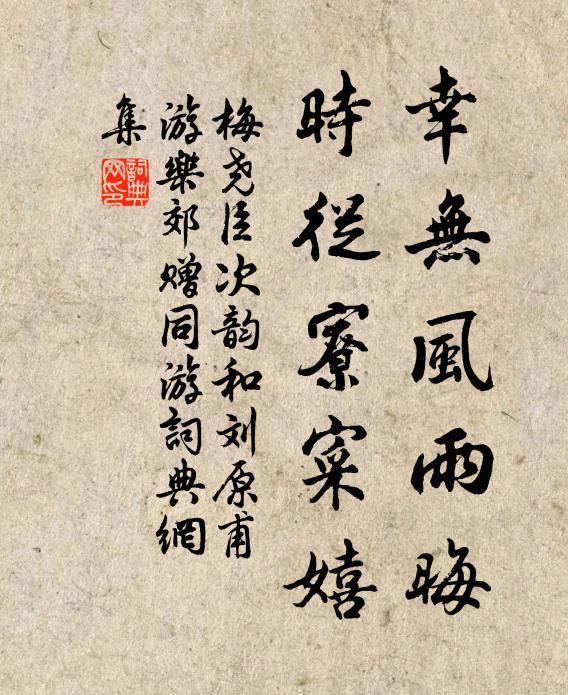 幸無風雨晦
時從寮寀嬉
梅尧臣次韵和刘原甫
游樂郊赠同游詞典網
集
詞典網印